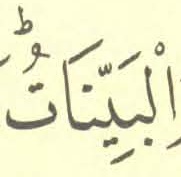 الْبَيِّنَاتُ